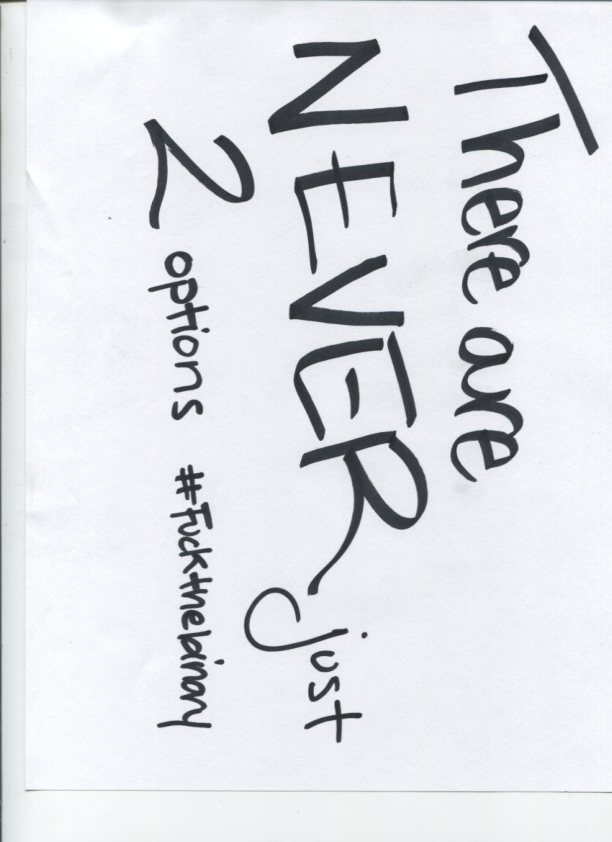 There are
NEVER just
2 options #fuckthebinary